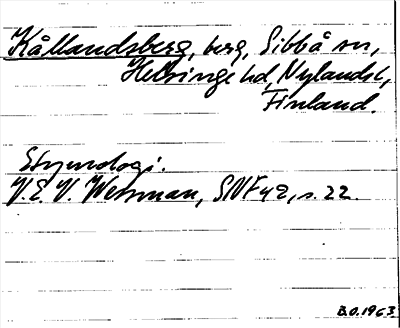 Kållandsberg, berg, Sibbå sn,
Helsinge hd, Nylands l.,
Finland.
Etymologi.
V.E.V. Wessman, SNF 42, s. 22.
B.O. 1963